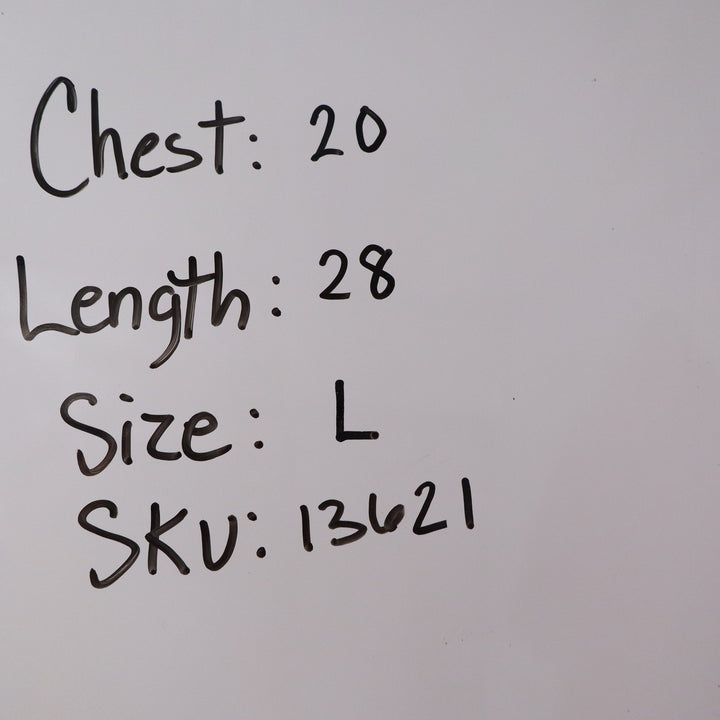 Chest: 20
Length: 28
Size: L
SKU: 13621